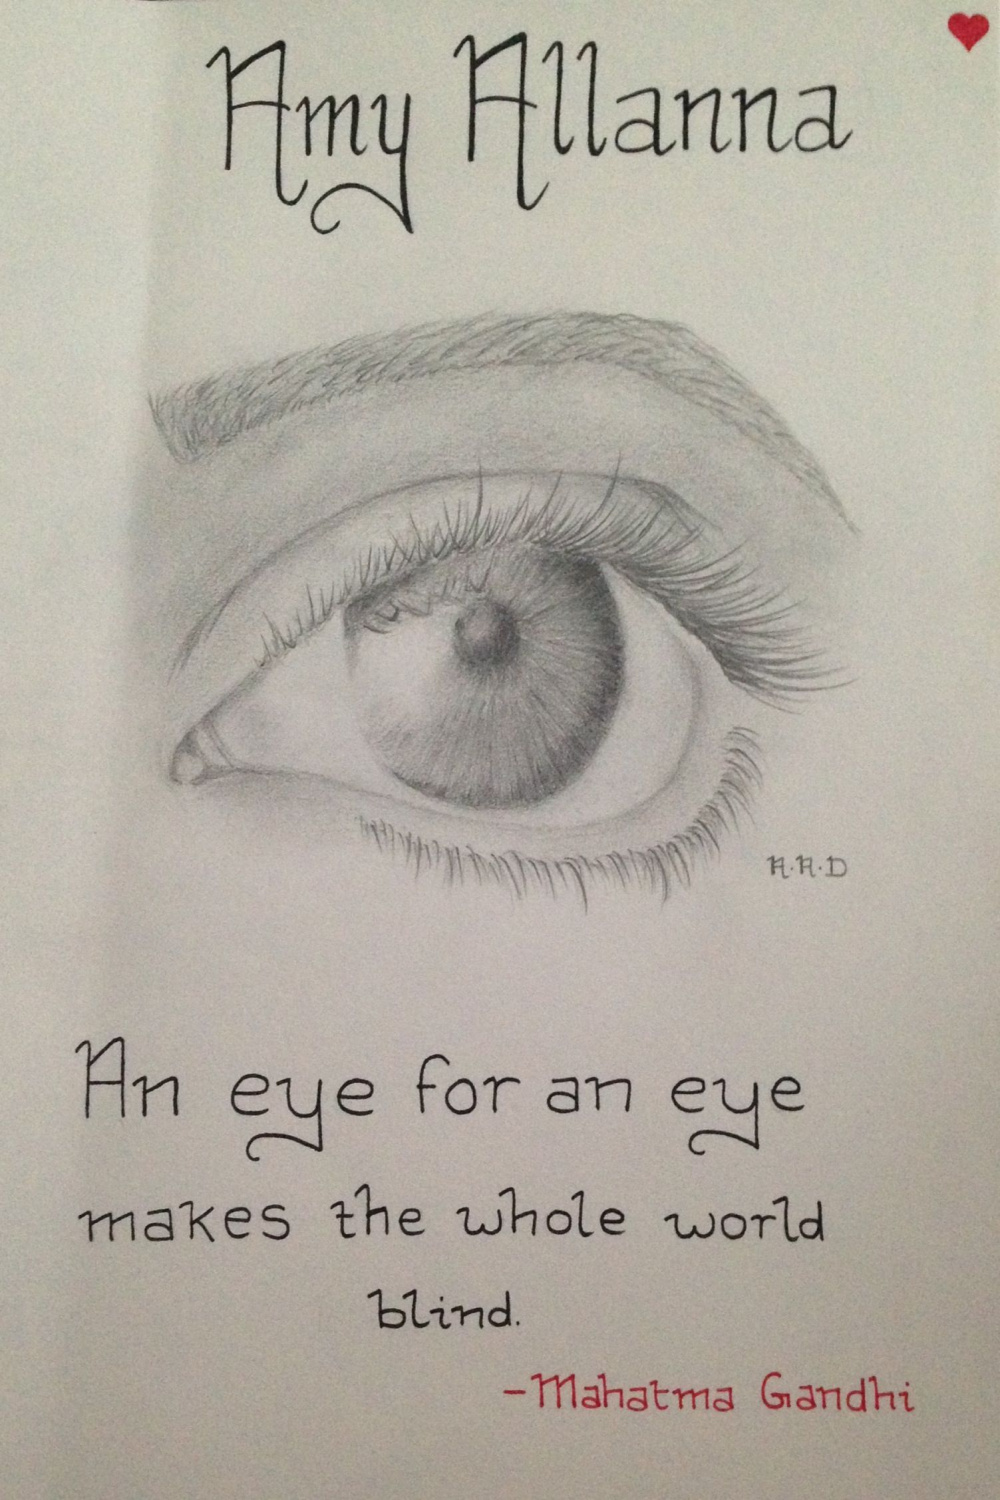 Amy Allanna
A.A.D
An eye for an eye
makes the whole world
blind.
-Mahatma Gandhi